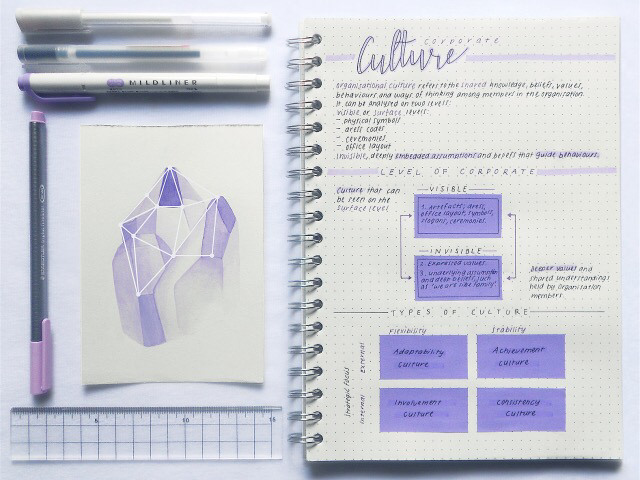 MILDLINER
corporate
Culture
organisational culture refers to the shared knowledge, beliefs, values,
behaviours and ways of thinking among members in the organisation.
It can be analysed on two levels:
visible or surface levels:
- physical symbols
- dress codes
- ceremonies
- office layout
Invisible, deeply embedded assumptions and beliefs that guide behaviours.
LEVEL OF CORPORATE
Culture that can
be seen on the
surface level
VISIBLE
1. Artefacts, dress,
office layout, symbols,
slogans, ceremonies.
INVISIBLE
2. Expressed values
3. underlying assumption
and deep beliefs, such
as "we are like family".
Deeper values and
shared understandings
held by organisation
members.
TYPES OF CULTURE
Flexibility
Stability
Strategic Focus
External
Internal
Adaptability
culture
Achievement
culture
Involvement
culture
Consistency
culture
5
10
15